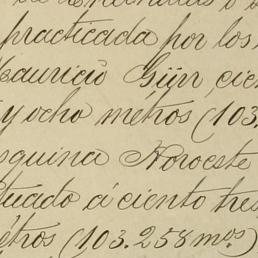 practicada por los
Mauricio Gürr, cien
y ocho metros (103.
squina Noroeste
tuado á ciento tres
etros (103.258 mos)